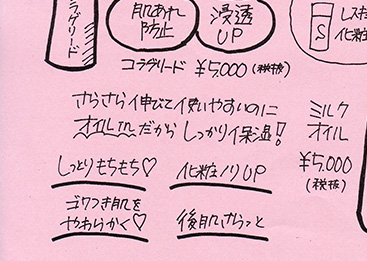 コラグリード
肌あれ
防止
浸透
UP
S
化粧
コラグリード ¥5,000 (税抜)
さらさら伸びて使いやすいのに
オイルinだからしっかり保湿!
ミルク
オイル
¥5,000
(税抜)
しっとりもちもち♡
化粧ノリUP
ゴワつき肌を
やわらかく♡
後肌さらっと